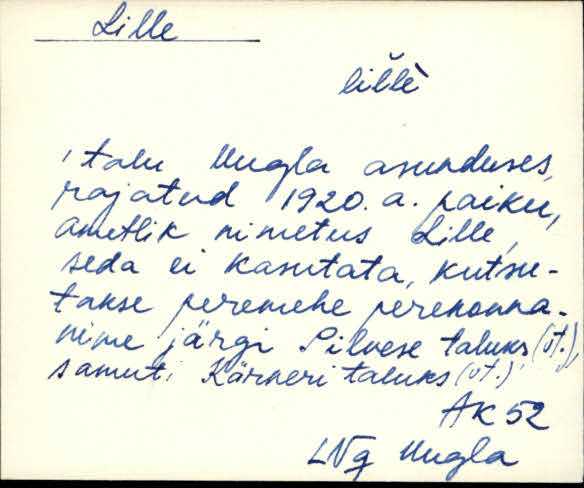 Lille
lil̆lè
'talu Uugla asunduses,
rajatud 1920. a. paiku,
ametlik nimetus Lille,
seda ei kasutata, kutsu-
takse peremehe perekonna-
nime järgi Silvese taluks (vt.)
samuti Kärneri taluks (vt.)
AK 52
LNg Uugla